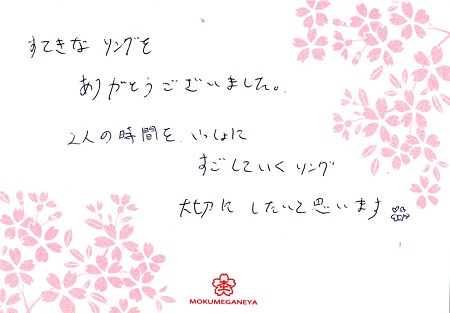 すてきな リングを
ありがとうございました。
2人の時間を、いっしょに
すごしていく リング
大切に したいと思います
MOKUMEGANEYA